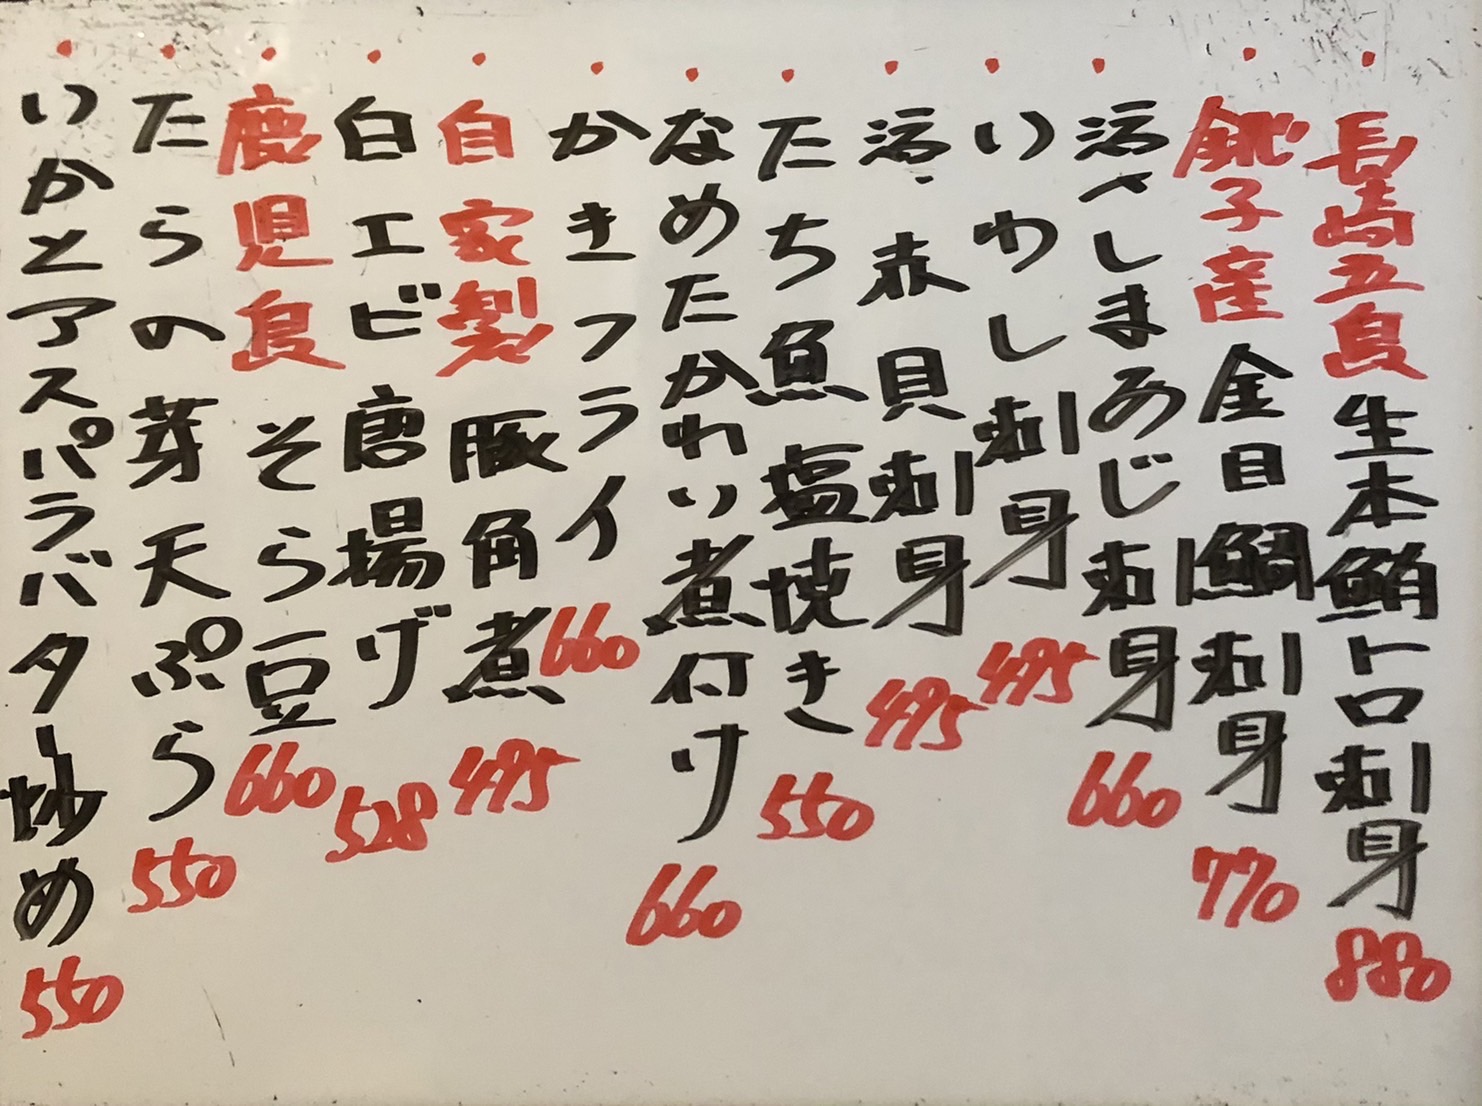 ・長崎五島生本鮪トロ刺身880
・銚子産金目鯛刺身770
・活〆しまあじ刺身660
・いわし刺身495
・活〆赤貝刺身495
・たち魚塩焼き550
・なめたかれい煮付け660
・かきフライ660
・自家製豚角煮495
・白エビ唐揚げ528
・鹿児島そら豆660
・たらの芽天ぷら550
・いかとアスパラバター炒め550